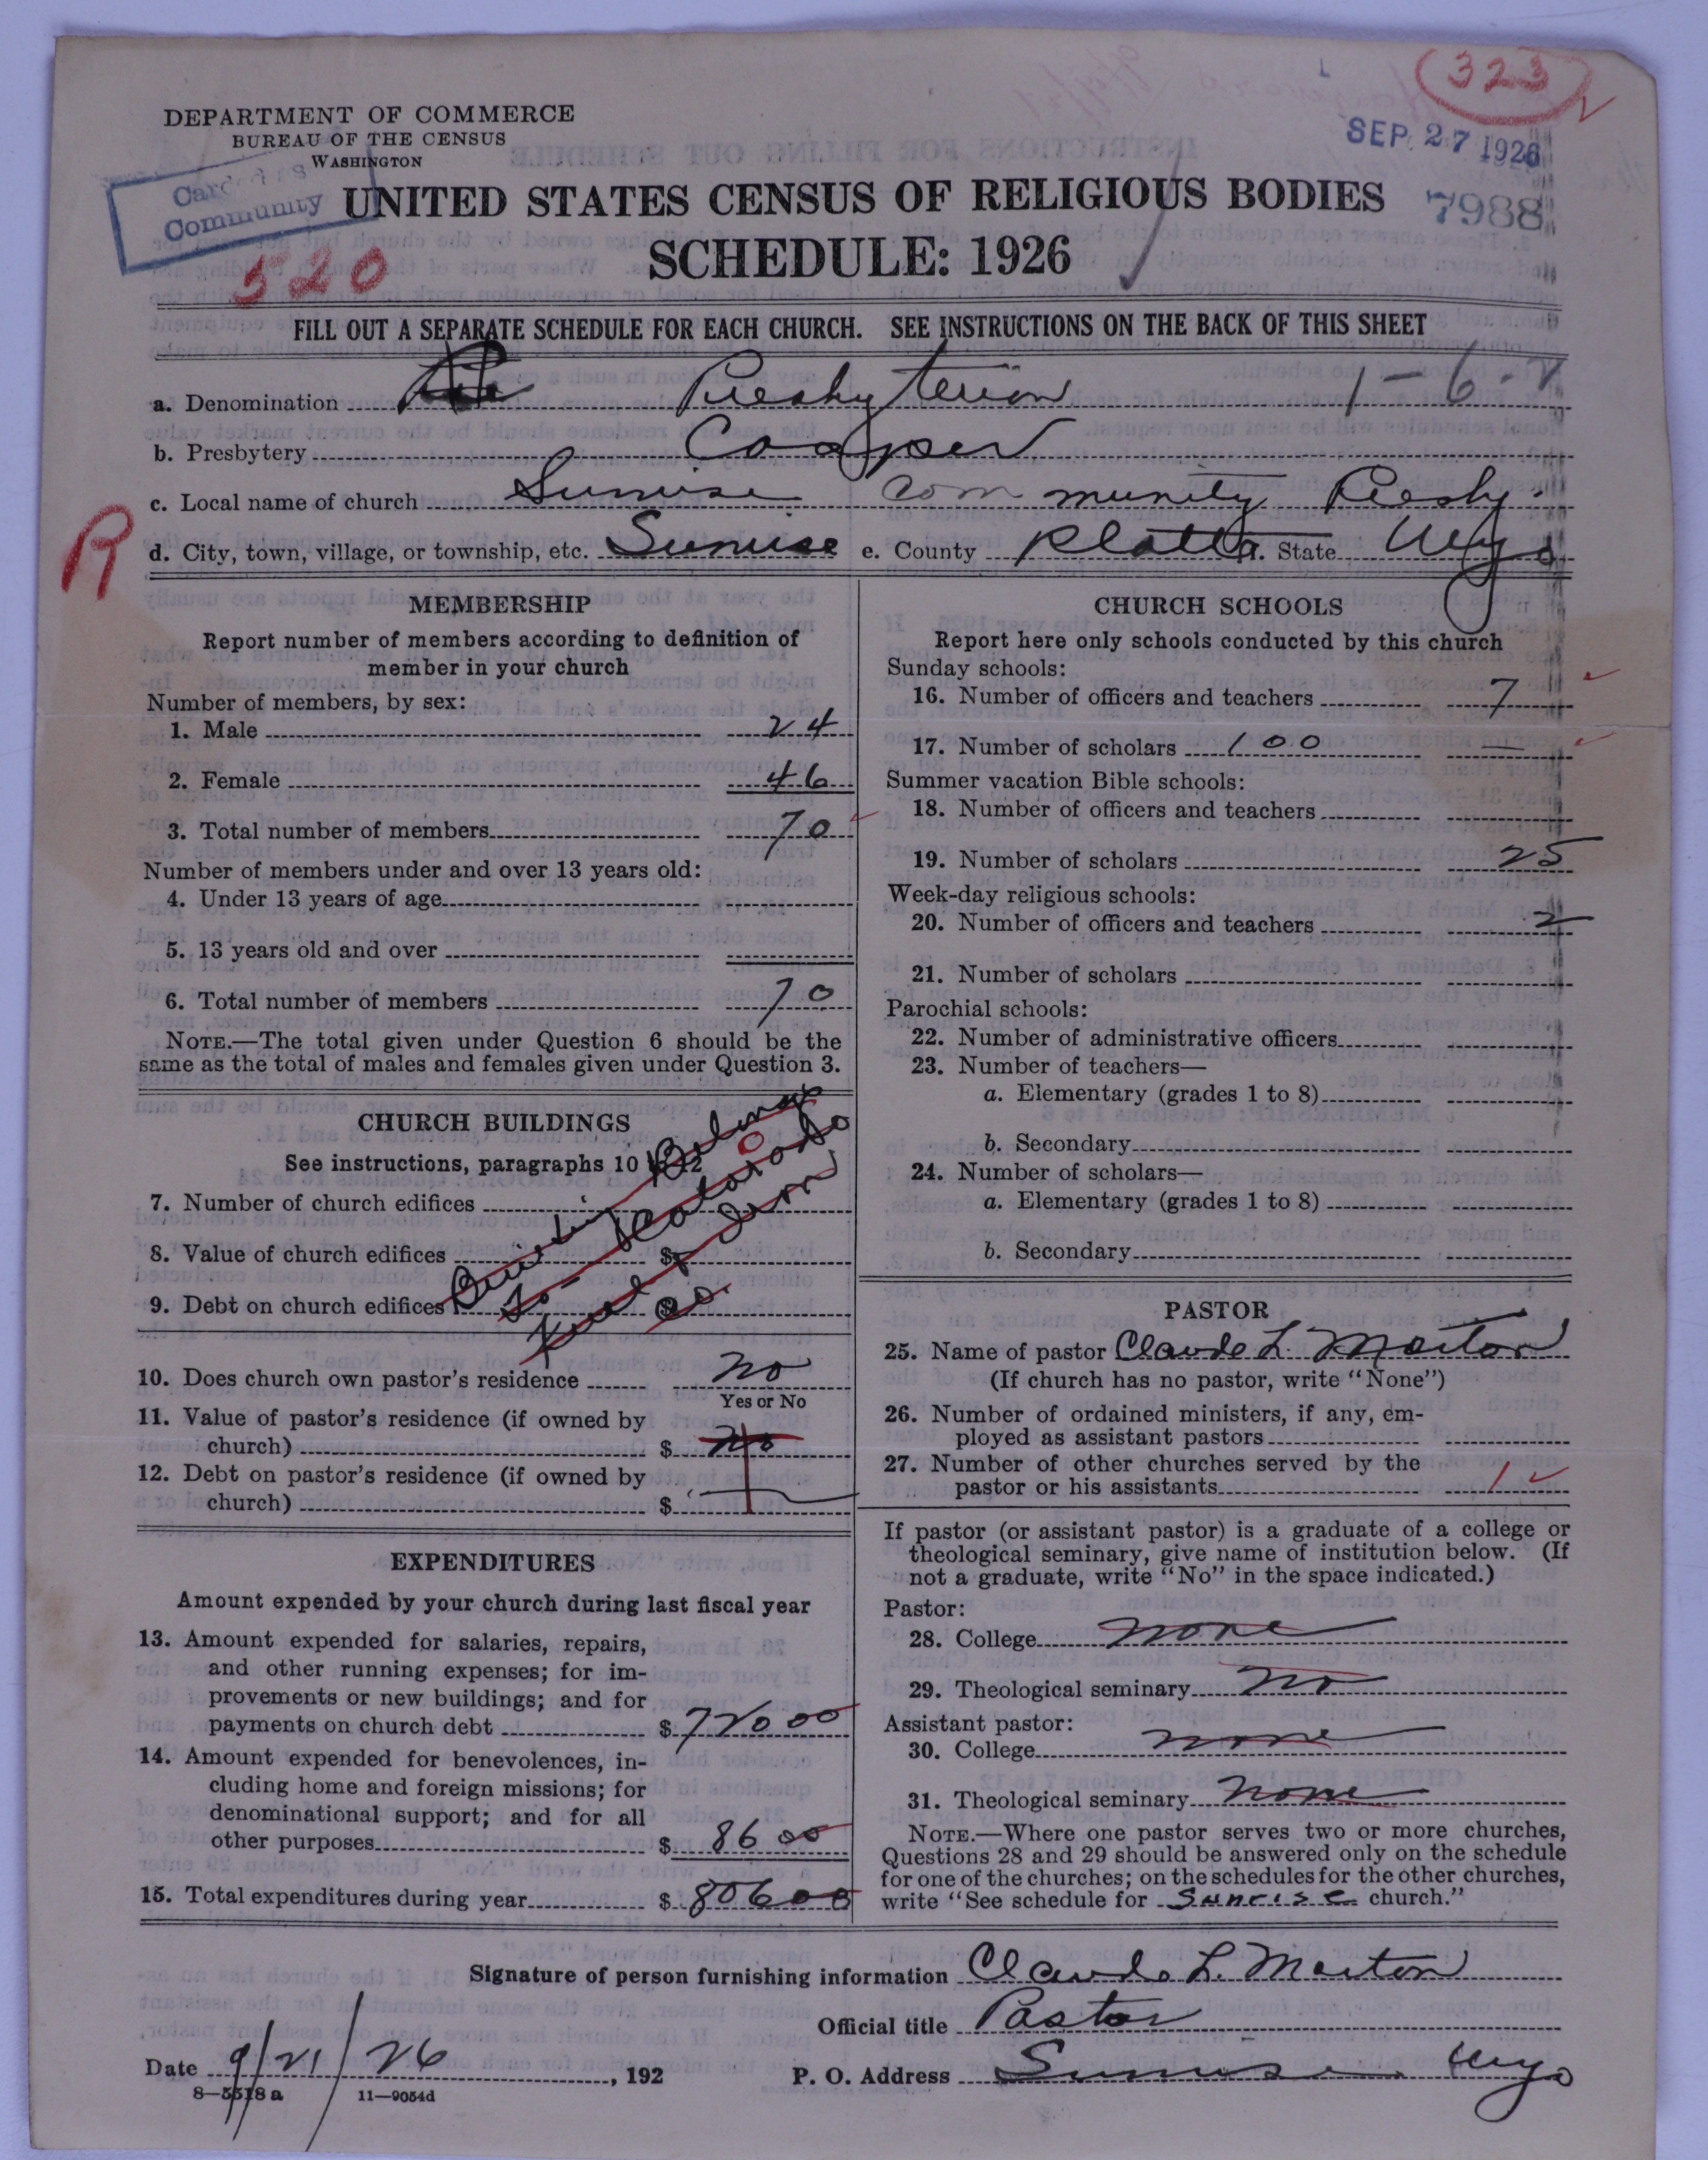 323
DEPARTMENT OF COMMERCE
BUREAU OF THE CENSUS
WASHINGTON
SEP 27 1926
7988
Community
520
UNITED STATES CENSUS OF RELIGIOUS BODIES
SCHEDULE: 1926
FILL OUT A SEPARATE SCHEDULE FOR EACH CHURCH. SEE INSTRUCTIONS ON THE BACK OF THIS SHEET
a. Denomination Presbyterian 1-6-
b. Presbytery Casper
c. Local name of church Sunrise Community Presby.
R
d. City, town, village, or township, etc. Sunrise e. County Platte State Wyo
MEMBERSHIP
Report number of members according to definition of
member in your church
Number of members, by sex:
1. Male 24
2. Female 46
3. Total number of members 70
Number of members under and over 13 years old:
4. Under 13 years of age
5. 13 years old and over
6. Total number of members 70
NOTE.—The total given under Question 6 should be the
same as the total of males and females given under Question 3.
CHURCH BUILDINGS
See instructions, paragraphs 10 to 12
7. Number of church edifices 0
8. Value of church edifices $
9. Debt on church edifices $
Building Belongs
To Colorado
Fuel & Iron
Co.
10. Does church own pastor's residence No
Yes or No
11. Value of pastor's residence (if owned by
church) $ No
12. Debt on pastor's residence (if owned by
church) $
EXPENDITURES
Amount expended by your church during last fiscal year
13. Amount expended for salaries, repairs,
and other running expenses; for im-
provements or new buildings; and for
payments on church debt $ 720 00
14. Amount expended for benevolences, in-
cluding home and foreign missions; for
denominational support; and for all
other purposes $ 86 00
15. Total expenditures during year $ 806 00
CHURCH SCHOOLS
Report here only schools conducted by this church
Sunday schools:
16. Number of officers and teachers 7
17. Number of scholars 100 —
Summer vacation Bible schools:
18. Number of officers and teachers
19. Number of scholars 25
Week-day religious schools:
20. Number of officers and teachers 2
21. Number of scholars
Parochial schools:
22. Number of administrative officers
23. Number of teachers—
a. Elementary (grades 1 to 8)
b. Secondary
24. Number of scholars—
a. Elementary (grades 1 to 8)
b. Secondary
PASTOR
25. Name of pastor Claude L. Marton
(If church has no pastor, write "None")
26. Number of ordained ministers, if any, em-
ployed as assistant pastors
27. Number of other churches served by the
pastor or his assistants 1
If pastor (or assistant pastor) is a graduate of a college or
theological seminary, give name of institution below. (If
not a graduate, write "No" in the space indicated.)
Pastor:
28. College none
29. Theological seminary No
Assistant pastor:
30. College none
31. Theological seminary none
NOTE.—Where one pastor serves two or more churches,
Questions 28 and 29 should be answered only on the schedule
for one of the churches; on the schedules for the other churches,
write "See schedule for Sunrise church."
Signature of person furnishing information Claude L. Marton
Official title Pastor
Date 9/21/26, 192
P. O. Address Sunrise Wyo
8—5518 a 11—9054d